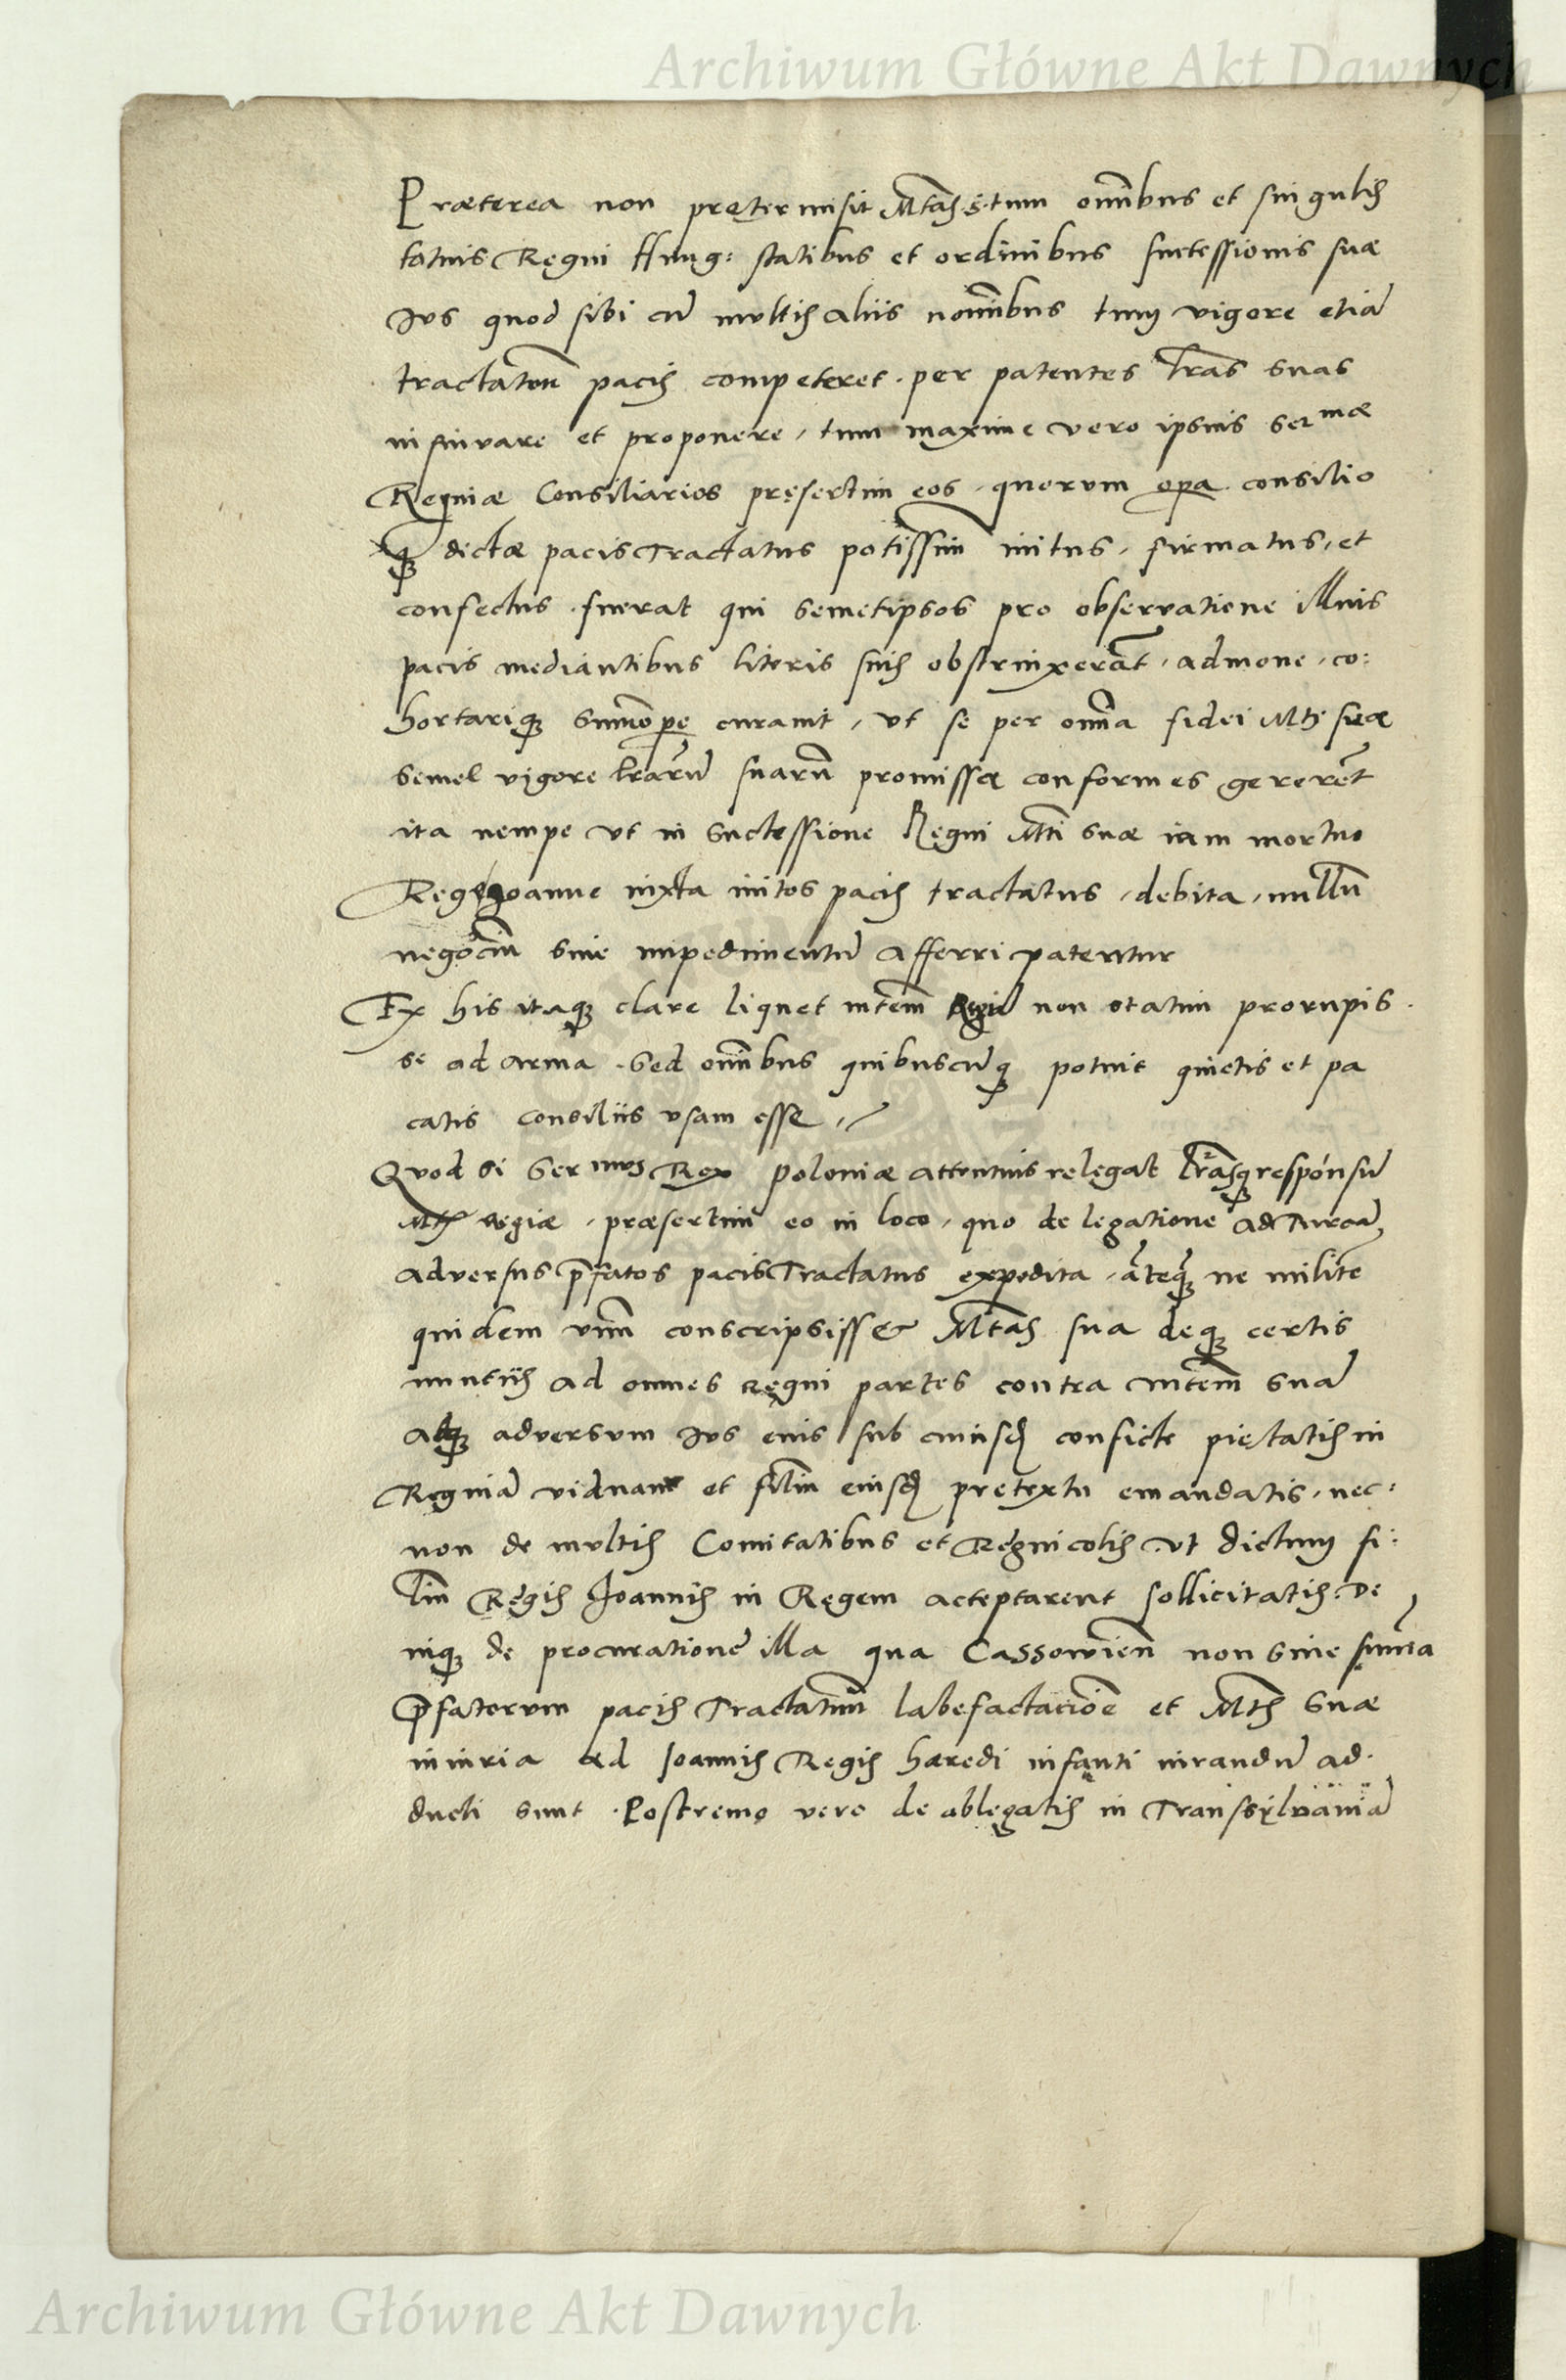 Archiwum Główne Akt Dawnych
Præterea non prętermisit Mtas s. tum omibus et singulis
totius Ręgni Hung: statibus et ordinibus suctessionis suæ
Jus quod sibi cũ multis aliis nominibus tum vigore etiã
tractatuũ pacis competeret. per patentes lras suas
insinuare et proponere, tum maxime vero ipsius sermæ
Reginæ Consiliarios pręsertim eos, quorum opa consilio
q3 dictæ pacis Tractatus potissim initus, firmatus, et
confectus fuerat qui semetipsos pro observatione illius
pacis mediantibus literis suis obstrinxerãt, admone, co:
hortariq3 summope curauit, ut se per omia fidei Mtis suæ
semel vigore lrarũ suarũ promissæ conformes gererẽt
ita nempe ut in suctessione Ręgni Mti suæ iam mortuo
Ręge Joanne iuxta initos pacis tractatus, debita, nullũ
negociũ sine impedimentũ afferri paterentur
Ex his itaq3 clare liquet mtem Regiã non statim prorupis
se ad arma. Sed omibus quibuscũq3 potuit quietis et pa
catis consiliis usam esse.
Quod si Sermus Rex Poloniæ attentius relegat lrasq3 responsũ
Mtis regiæ, præsertim eo in loco, quo de legatione ad Turcã
adversus pfatos pacis Tractatus expedita, ãteq3 ne militẽ
quidem unũ conscripsisset Mtas sua deq3 certis
nuntiis ad omnes ręgni partes contra mtem suã
atq3 adversum Jus eius sub cuiusd confictę pietatis in
Ręginã viduam et filiũ eiusd pretextu emandatis, nec:
non de multis Comitatibus et Regnicolis ut dictum fi:
liũ Regis Joannis in Ręgem acteptarent sollicitatis. De
niq3 de procuratione illa qua Cassowien non sine summa
pfatorum pacis Tractatuũ labefactatiõe et Mtis suæ
iniuria ad Joannis Regis hæredi infanti iurandũ ad.
ducti sunt. Postremo vero de ablegatis in Transsylvaniã
Archiwum Główne Akt Dawnych